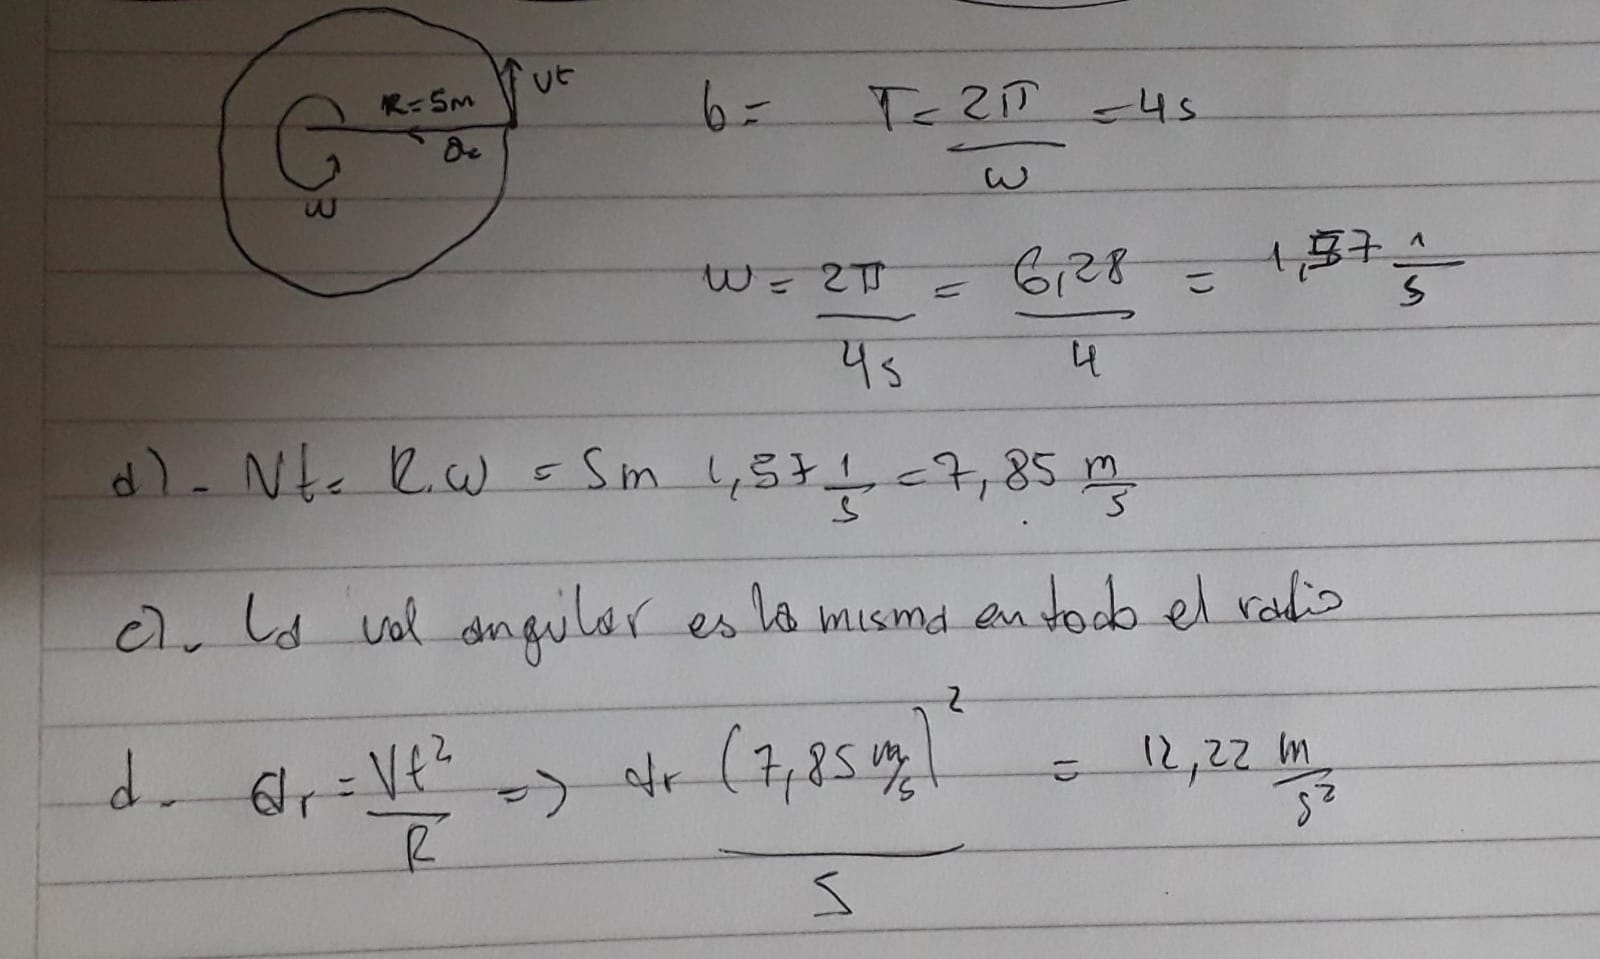 R=5m
Vt
ac
w
b= T= 2π/w = 4s
w = 2π/4s = 6,28/4 = 1,57 1/s
d)- Vt= R.w = 5m 1,57 1/s = 7,85 m/s
c)- La vel angular es la misma en todo el radio
d- ar = Vt²/R => ar (7,85 m/s)²/5 = 12,22 m/s²